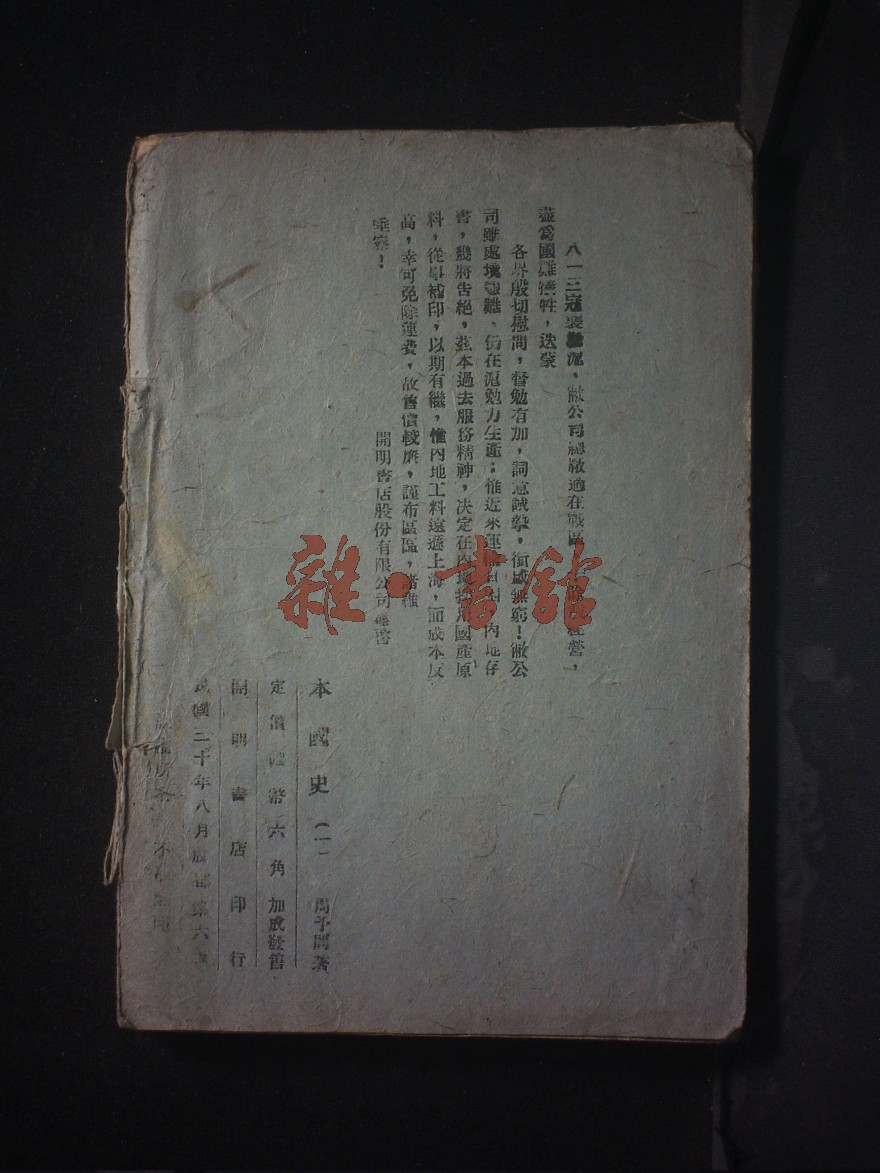 八一三寇襲淞滬、敝公司總廠適在戰區、經營,
盡爲國難犧牲,迭蒙
各界殷切慰問,督勉有加,詞意誠摯,銜感無窮!敝公
司雖處境艱難、仍在滬勉力生產;惟近來運、內地存
書,幾將告絕,茲本過去服務精神,決定在內地國產原
料,從事補印,以期有繼,惟內地工料遠遜上海,而成本反
高,幸可免除運費,故售價較廉,謹布區區,諸維
垂察!
開明書店股份有限公司謹啓
本國史(一) 周予同著
定價國幣六角加成發售
開明書店印行
民國三十年八月成都第六版
不
雜·書館